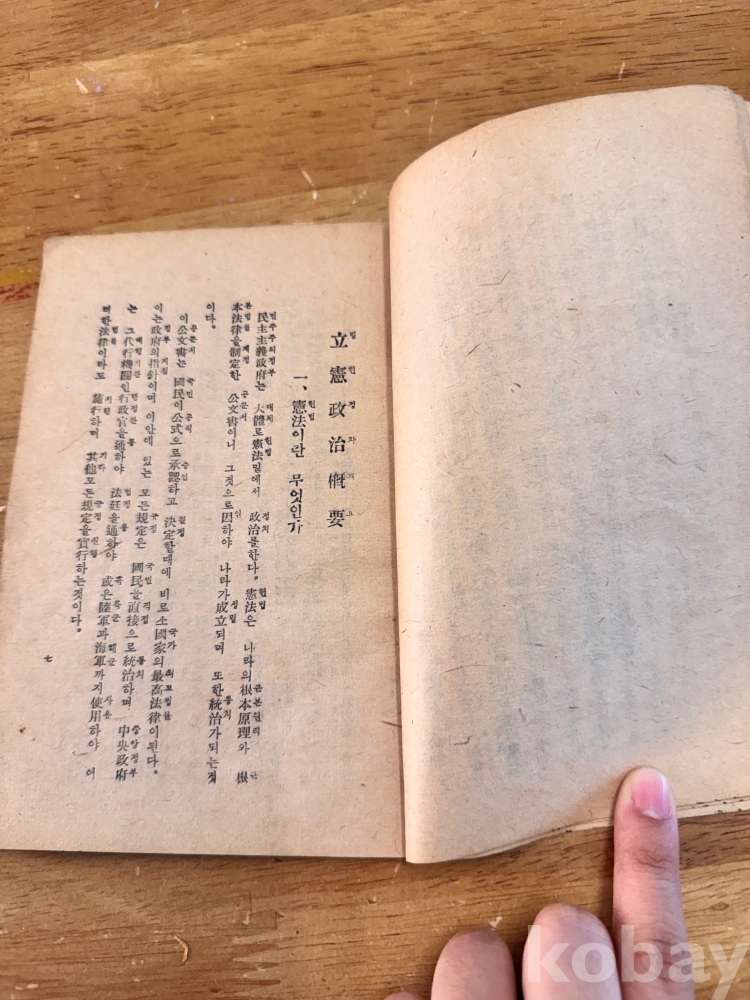 立憲政治概要
一、憲法이란 무엇인가
民主主義政府는 大體로 憲法밑에서 政治를한다. 憲法은 나라의根本原理와 根
本法律을制定한 公文書이니 그것으로因하야 나라가成立되며 또한統治가되는것
이다.
이公文書는 國民이公式으로承認하고 決定할때에 비로소國家의最高法律이된다.
이는政府의指針이며 이안에 있는 모든規定은 國民을直接으로統治하며 中央政府
는 그代行機關인行政官을通하야 法廷을通하야 或은陸軍과海軍까지使用하야 어
떠한法律이라도 施行하며 其他모든規定을實行하는것이다.
七
kobay